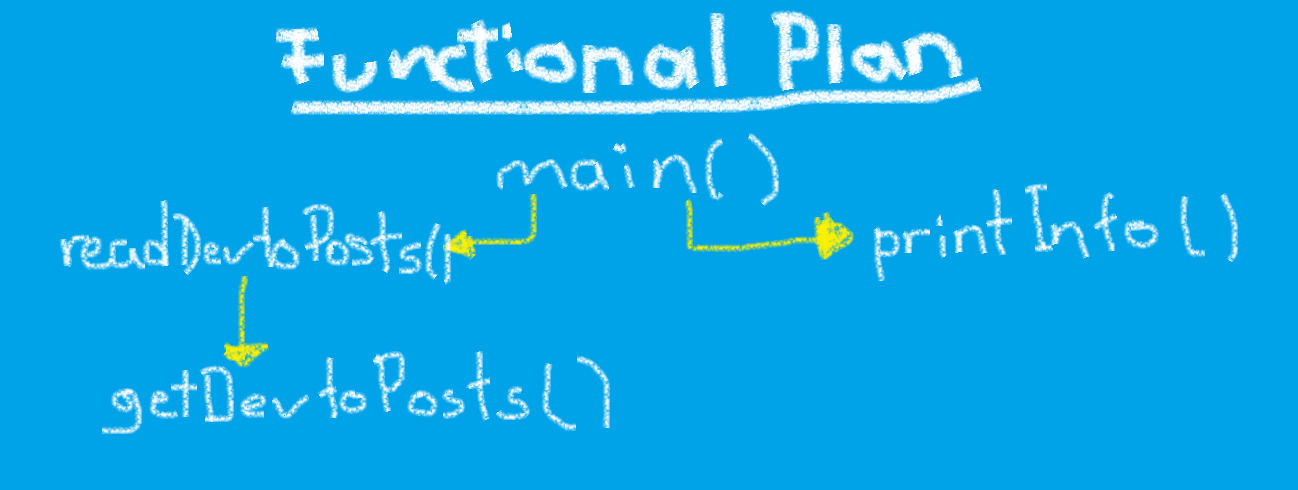 Functional Plan
main()
readDevtoPosts()
printInfo()
getDevtoPosts()